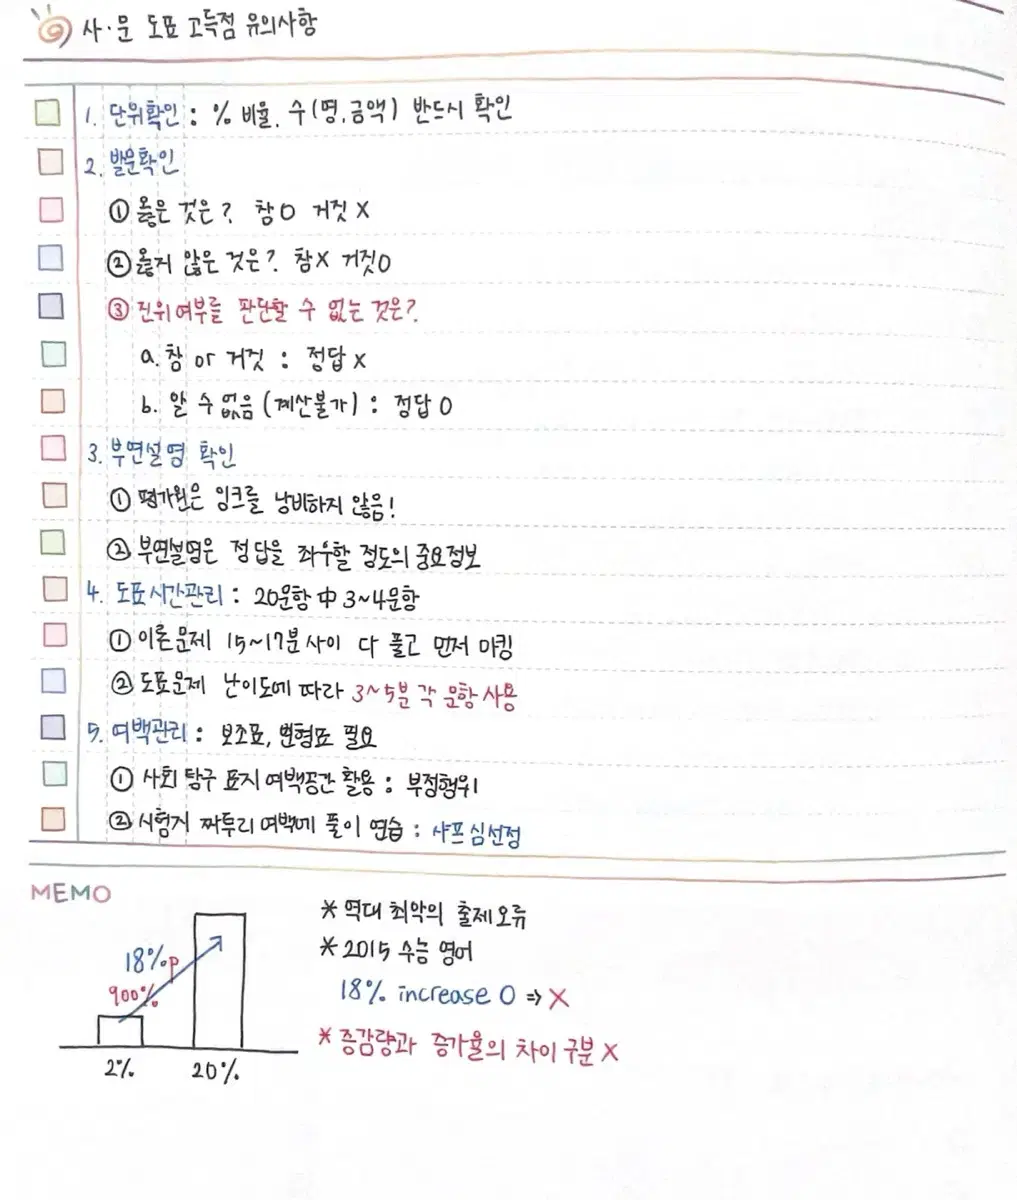 사·문 도표 고득점 유의사항
1. 단위확인 : % 비율. 수(명.금액) 반드시 확인
2. 발문확인
① 옳은 것은? 참 O 거짓 X
② 옳지 않은 것은? 참X 거짓O
③ 진위여부를 판단할 수 없는 것은?
a. 참 or 거짓 : 정답 X
b. 알 수 없음 (계산불가) : 정답 O
3. 부연설명 확인
① 평가원은 잉크를 낭비하지 않음!
② 부연설명은 정답을 좌우할 정도의 중요정보
4. 도표시간관리 : 20문항 中 3~4문항
① 이론문제 15~17분사이 다 풀고 먼저 마킹
② 도표문제 난이도에 따라 3~5분 각 문항 사용
5. 여백관리 : 보조표, 변형표 필요
① 사회 탐구 표지 여백공간 활용 : 부정행위!
② 시험지 짜투리 여백에 풀이 연습 : 샤프심선정
MEMO
18%p
900%
2%
20%
* 역대 최악의 출제오류
* 2015 수능 영어
18% increase O ⇒ X
* 증감량과 증가율의 차이 구분 X